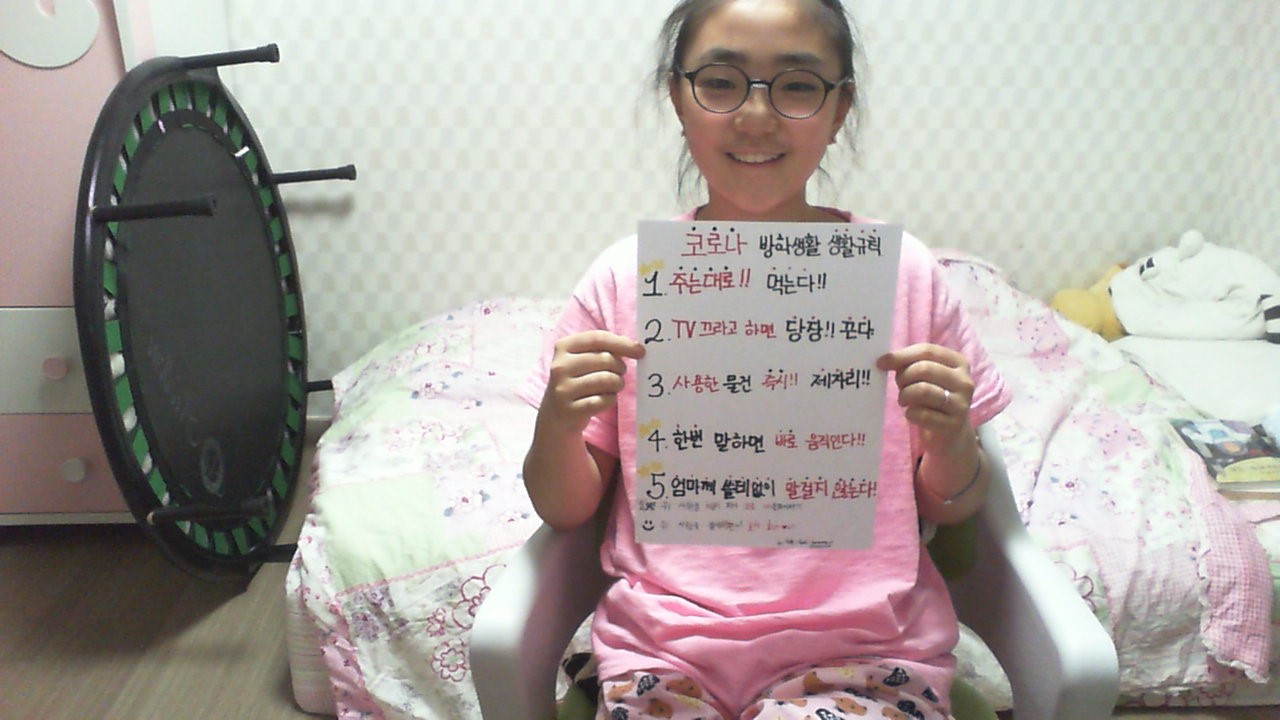 코로나 방학생활 생활규칙
1. 주는대로!! 먹는다!!
2. TV 끄라고 하면 당장!! 끈다
3. 사용한 물건 즉시!! 제자리!!
4. 한번 말하면 바로 움직인다!!
5. 엄마께 쓸데없이 말걸지 않는다!